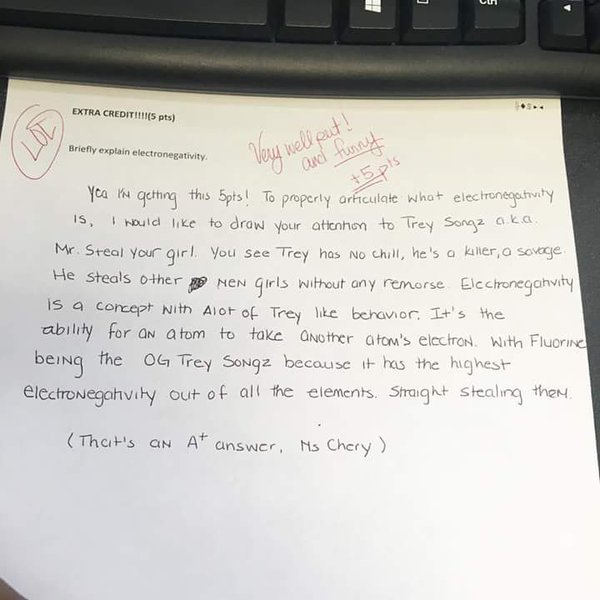 Ctrl
EXTRA CREDIT!!!!(5 pts)
LOL
Very well put!
and funny
+5 pts
Briefly explain electronegativity.
Yea I'm getting this 5pts! To properly articulate what electronegativity
is, I would like to draw your attention to Trey Songz a.k.a.
Mr. Steal your girl. You see Trey has no chill, he's a killer, a savage.
He steals other men girls without any remorse. Electronegativity
is a concept with Alot of Trey like behavior. It's the
ability for an atom to take another atom's electron. With Fluorine
being the OG Trey Songz because it has the highest
electronegativity out of all the elements. Straight stealing them.
(That's an A+ answer, Ms Chery)